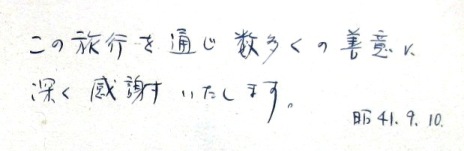 この旅行を通じ数多くの善意に
深く感謝すいたします。
昭41.9.10.